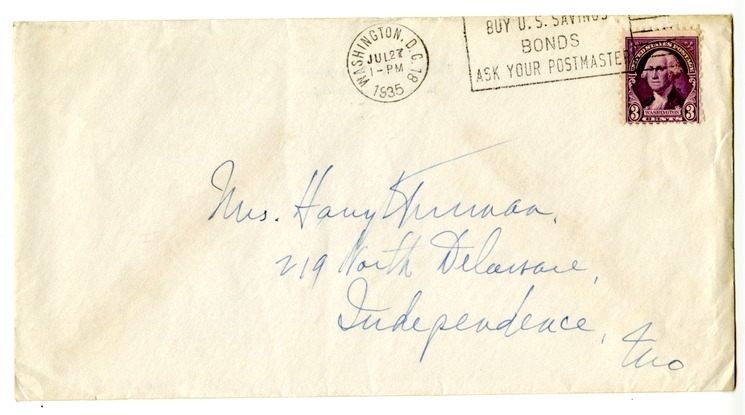 WASHINGTON, D.C. 18
JUL 27
1-PM
1935
BUY U.S. SAVINGS
BONDS
ASK YOUR POSTMASTER
UNITED STATES POSTAGE
3 WASHINGTON 3
CENTS
Mrs. Harry Truman,
219 North Delaware,
Independence,
Mo